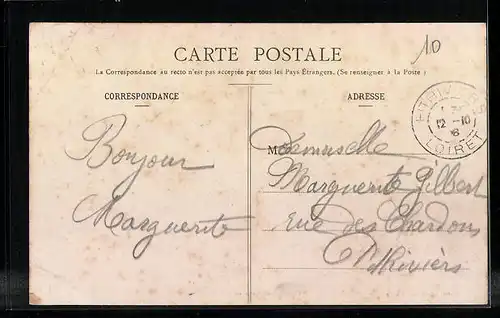 10
CARTE POSTALE
La Correspondance au recto n'est pas acceptée par tous les Pays Étrangers. (Se renseigner à la Poste)
CORRESPONDANCE
ADRESSE
PITHIVIERS
12 -10
LOIRET
Bonjour
Marguerite
Mdemoiselle
Marguerite Gilbert
rue des Chardons
Pithiviers